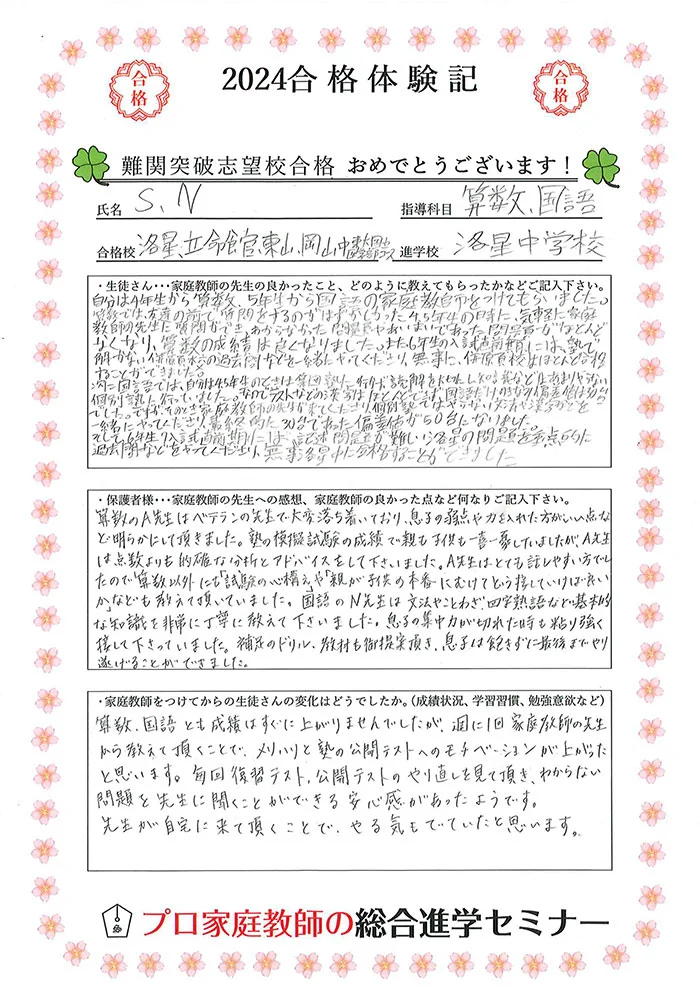 合格
2024合格体験記
合格
難関突破志望校合格 おめでとうございます！
氏名 S、N 指導科目 算数、国語
合格校 洛星、立命館宮、東山、岡山中 進学校 洛星中学校
・生徒さん・・・家庭教師の先生の良かったこと、どのように教えてもらったかなどご記入下さい。
自分は4年生から算数、5年生から国語の家庭教師をつけてもらいました。
算数では、友達の前で質問をするのがはずかしかった4,5年生の時に、気軽に家庭
教師の先生に質問ができ、わからなかった問題やあいまいであった問題がほとんど
なくなり、算数の成績は良くなりました。また6年生の入試直前期には、塾で
解かない併願校の過去問などを一緒にやってくださり、無事に、併願校はほとんど合格
することができました。
次に国語では、自分は4,5年生のときは
個別塾に行っていました。なのでテストなどの漢字はほとんどできず、国語だけかなり偏差値は30台
でした。ですが、そのとき家庭教師の先生が来てくださり、個別塾ではやらない文法や漢字などを
一緒にやってくださり、最終的に30台であった偏差値が50台になりました。
そして6年生の入試直前期には、記述問題が難しい洛星の問題を重点的に
過去問などをやってくださり、無事洛星中に合格することができました
・保護者様・・・家庭教師の先生への感想、家庭教師の良かった点など何なりご記入下さい。
算数のA先生はベテランの先生で大変落ち着いており、息子の弱点や力を入れた方がいい点な
ど明らかにして頂きました。塾の模擬試験の成績で親も子供も一喜一憂していましたが、A先生
は点数よりも的確な分析とアドバイスをして下さいました。A先生はとても話しやすい方でし
たので算数以外にも"試験の心構え"や"親が子供の本番にむけてどう接していけば良い
か"なども教えて頂いていました。国語のN先生は文法やことわざ、四字熟語など基本的
な知識を非常に丁寧に教えて下さいました。息子の集中力が切れた時も粘り強く
接して下さっていました。補足のドリル、教材も御提案頂き、息子は飽きずに最後までやり
遂げることができました。
・家庭教師をつけてからの生徒さんの変化はどうでしたか。（成績状況、学習習慣、勉強意欲など）
算数、国語とも成績はすぐに上がりませんでしたが、週に1回家庭教師の先生
から教えて頂くことで、メリハリと塾の公開テストへのモチベーションが上がった
と思います。毎回復習テスト、公開テストのやり直しを見て頂き、わからない
問題を先生に聞くことができる安心感があったようです。
先生が自宅に来て頂くことで、やる気もでていたと思います。
プロ家庭教師の総合進学セミナー